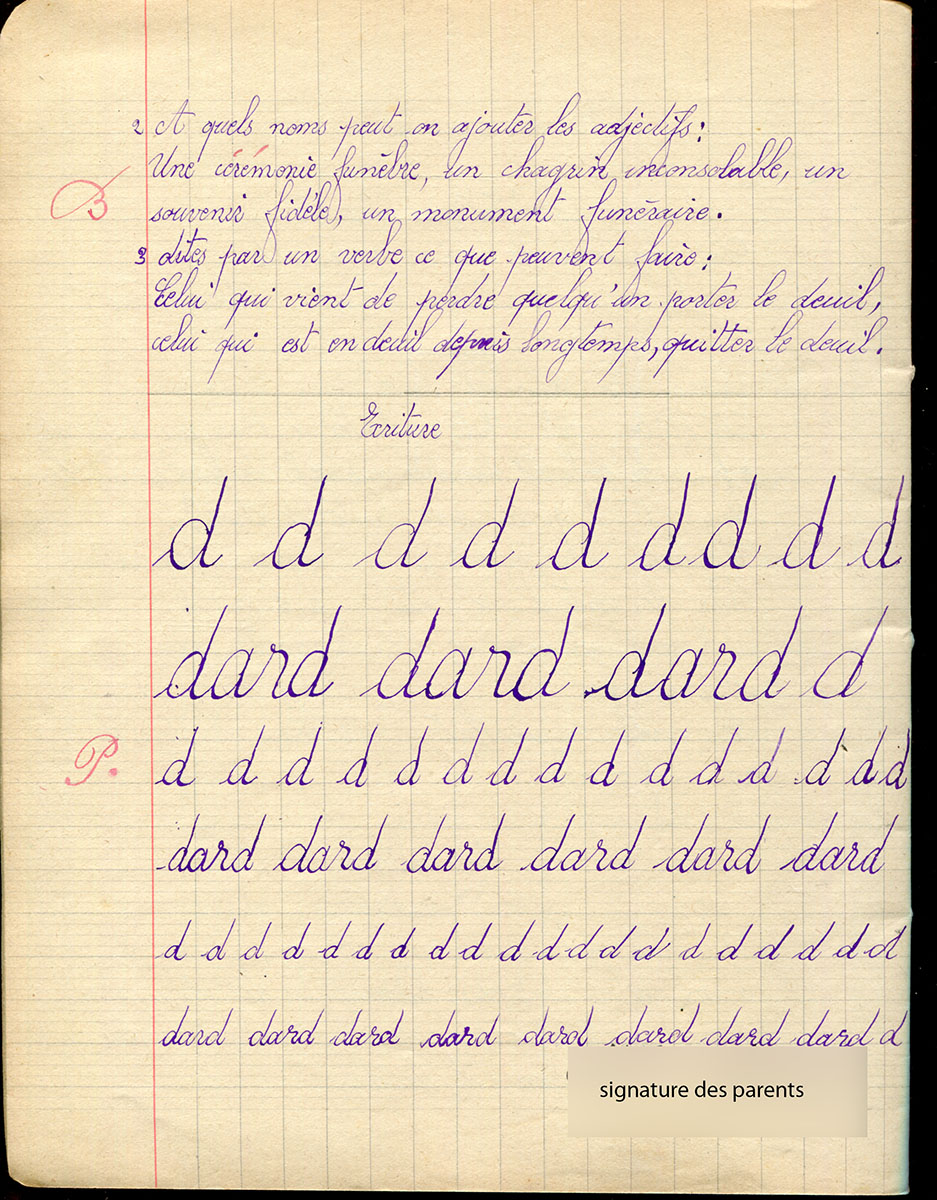 2 A quels noms peut on ajouter les adjectifs:
Une cérémonie funèbre, un chagrin inconsolable, un
B
souvenir fidèle, un monument funéraire.
3 dites par un verbe ce que peuvent faire:
Celui qui vient de perdre quelqu'un porter le deuil,
celui qui est en deuil depuis longtemps, quitter le deuil.
Ecriture
d d d d d d d d d
dard dard dard d
P.
d d d d d d d d d d d d d d d
dard dard dard dard dard dard
d d d d d d d d d d d d d d d d d d d d
dard dard dard dard dard dard dard dard d
signature des parents